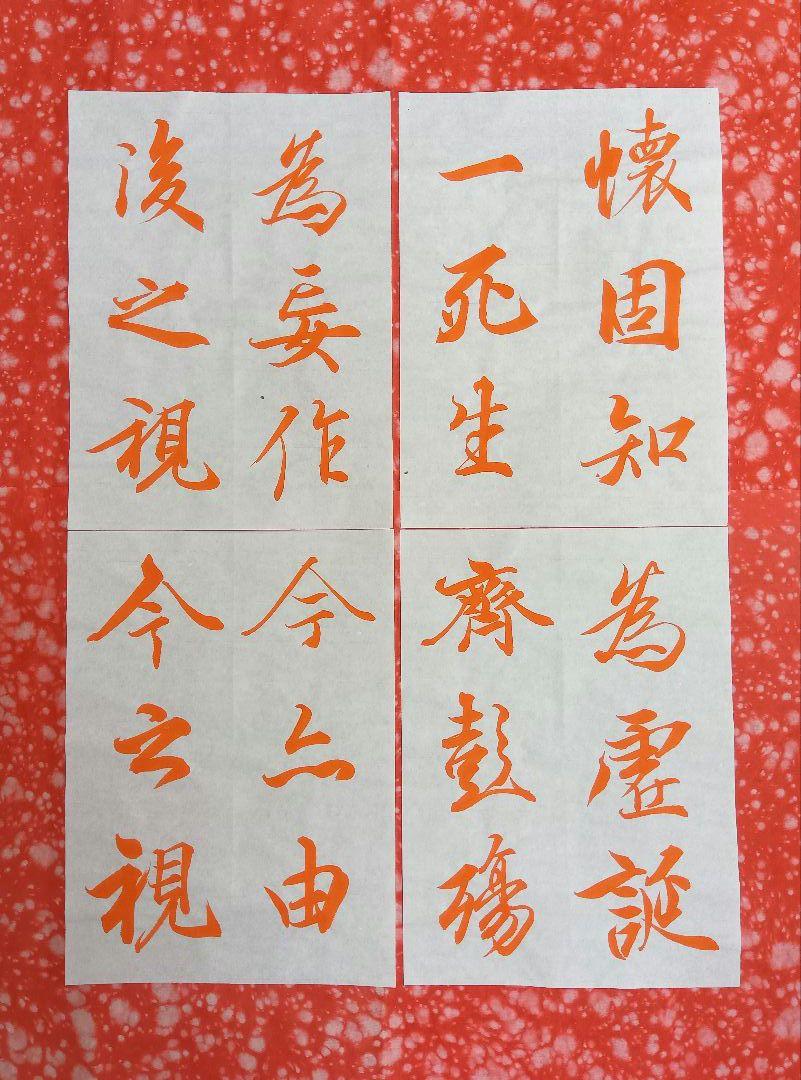 懷固知
一死生
為虛誕
齊彭殤
為妄作
後之視
今亦由
今之視